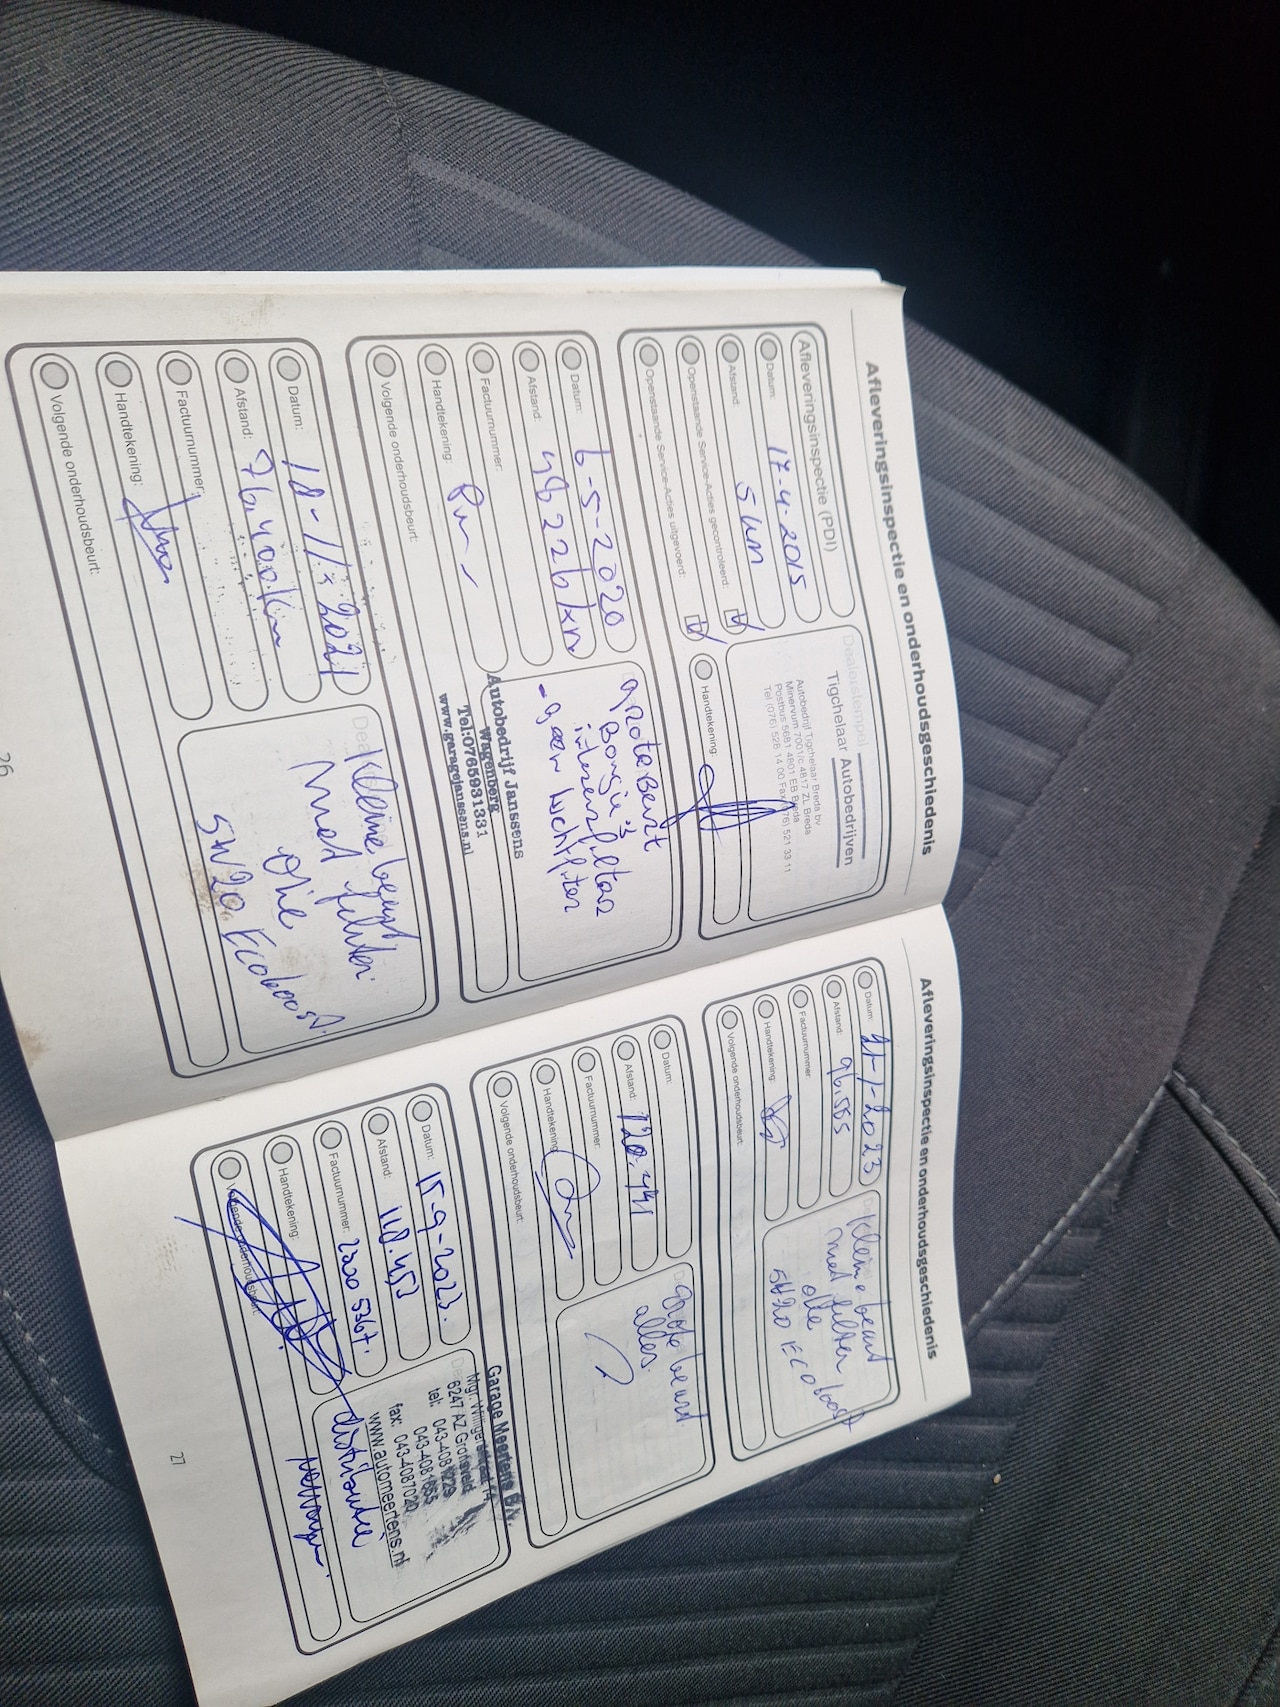 Afleveringsinspectie en onderhoudsgeschiedenis
Afleveringsinspectie (PDI)
Datum: 17-4-2015
Afstand: 5 km
Openstaande Service-Acties gecontroleerd:
Openstaande Service-Acties uitgevoerd:
Dealerstempel
Tigchelaar Autobedrijven
Autobedrijf Tigchelaar Breda bv
Minervum 7001/c 4817 ZL Breda
Postbus 5681 4801 EB Breda
Tel (076) 526 14 00 Fax (076) 521 33 11
Handtekening:
Datum: 6-5-2020
Afstand: 48226 km
Factuurnummer:
Handtekening:
Volgende onderhoudsbeurt:
grote Beurt
Bougie's
interieurfilter
- geen luchtfilter
Autobedrijf Janssens
Wagenberg
Tel:0765931331
www.garagejanssens.nl
Datum: 18-11-2021
Afstand: 76.400 km
Factuurnummer:
Handtekening:
Volgende onderhoudsbeurt:
Kleine beurt
met filter
olie
5W20 Ecoboost.
26
Afleveringsinspectie en onderhoudsgeschiedenis
Datum: 21-1-2023
Afstand: 96.555
Factuurnummer:
Handtekening:
Volgende onderhoudsbeurt:
Kleine beurt
met filter
olie
5W20 Ecoboost
Datum:
Afstand: 120.441
Factuurnummer:
Handtekening:
Volgende onderhoudsbeurt:
Grote beurt
alles.
Datum: 15-9-2023.
Afstand: 110.453
Factuurnummer:
Handtekening:
Volgende onderhoudsbeurt:
Garage Meertens B.V.
6247 AZ Gronsveld
tel: 043-4081229
043-4081655
fax: 043-4087020
www.automeertens.nl
distributie
vervangen.
27